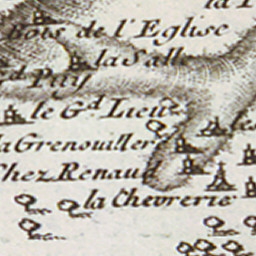 la P
bois de l'Eglise
la Salle
d Puy
le Gd. Lieu
la Grenouillere
les
Chez Renaud
la Chevrerie